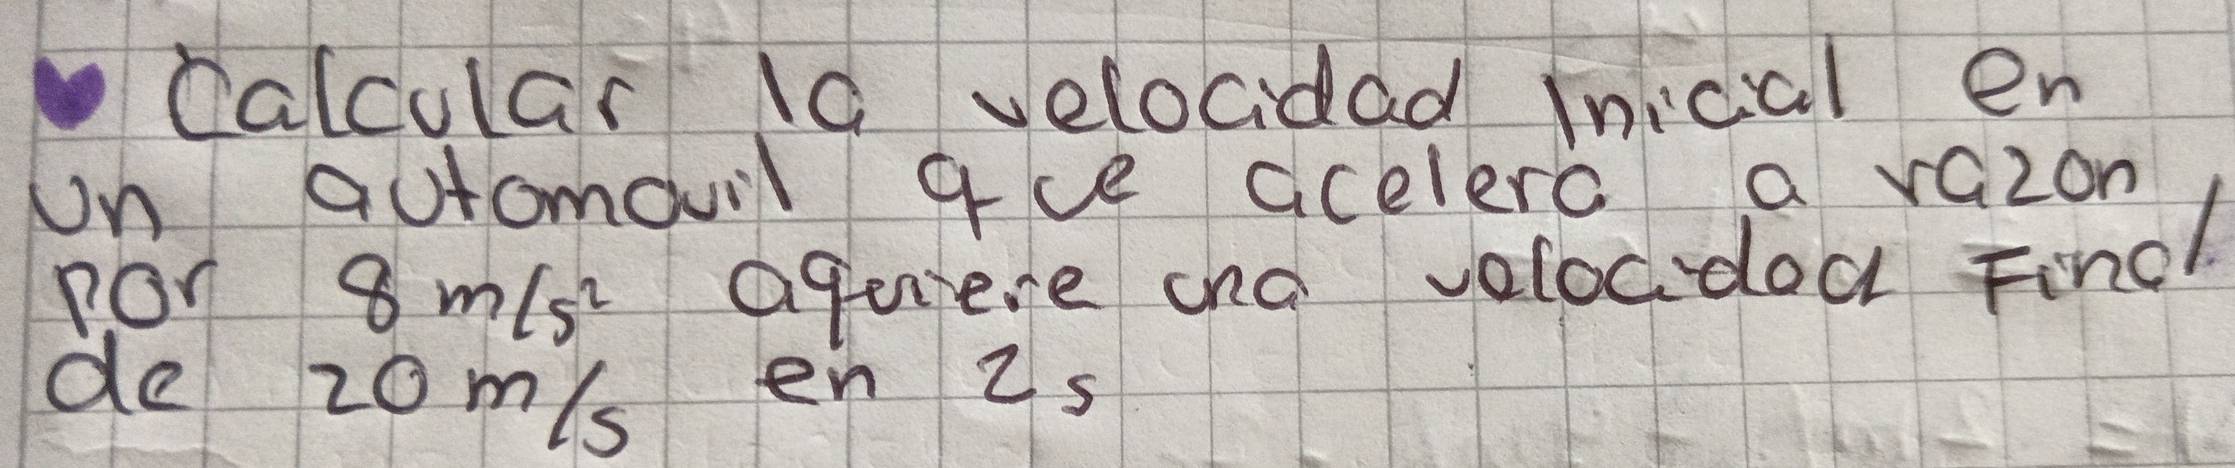 Calcular la velocidad Inicial en
un automovil que acelera a razon
por 8 m/s² aquiere una velocidad Final
de 20 m/s en 2s